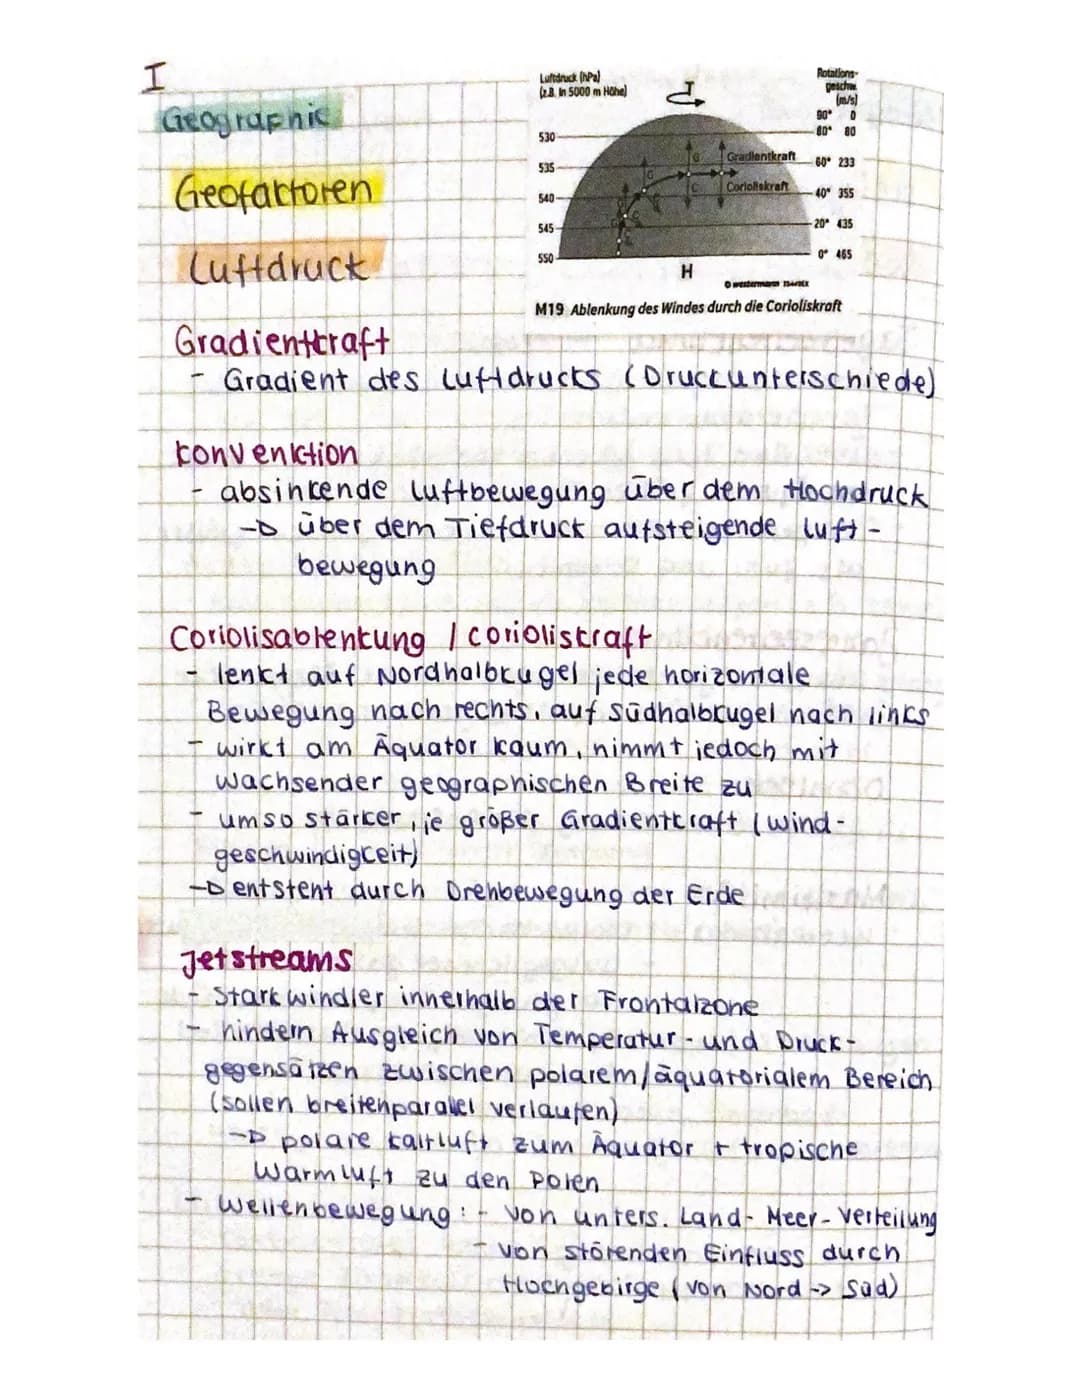 I
Geographie
Geofaktoren
Luftdruck
Luftdruck (hPa)
(z.B. in 5000 m Höhe)
T
Rotations-
geschw.
(m/s)
90° 0
80° 80
530
535
Gradientkraft
60° 233
G
G
540
C
Corioliskraft
40° 355
545
20° 435
550
0° 465
H
© westermann
M19 Ablenkung des Windes durch die Corioliskraft
Gradientkraft
- Gradient des Luftdrucks (Druckunterschiede)
Konvenktion
- absinkende Luftbewegung über dem Hochdruck
→ über dem Tiefdruck aufsteigende Luft-
bewegung
Coriolisablenkung / Corioliskraft
- lenkt auf Nordhalbkugel jede horizontale
Bewegung nach rechts, auf Südhalbkugel nach links
- wirkt am Äquator kaum, nimmt jedoch mit
wachsender geographischen Breite zu
- umso stärker, je größer Gradientkraft (Wind-
geschwindigkeit)
→ entsteht durch Drehbewegung der Erde
Jetstreams
- Starkwindler innerhalb der Frontalzone
- hindern Ausgleich von Temperatur- und Druck-
gegensätzen zwischen polarem/äquatorialem Bereich
(sollen breitenparallel verlaufen)
→ polare Kaltluft zum Äquator + tropische
Warmluft zu den Polen
- Wellenbewegung: - von unters. Land-Meer-Verteilung
- von störenden Einfluss durch
Hochgebirge (von Nord -> Süd)